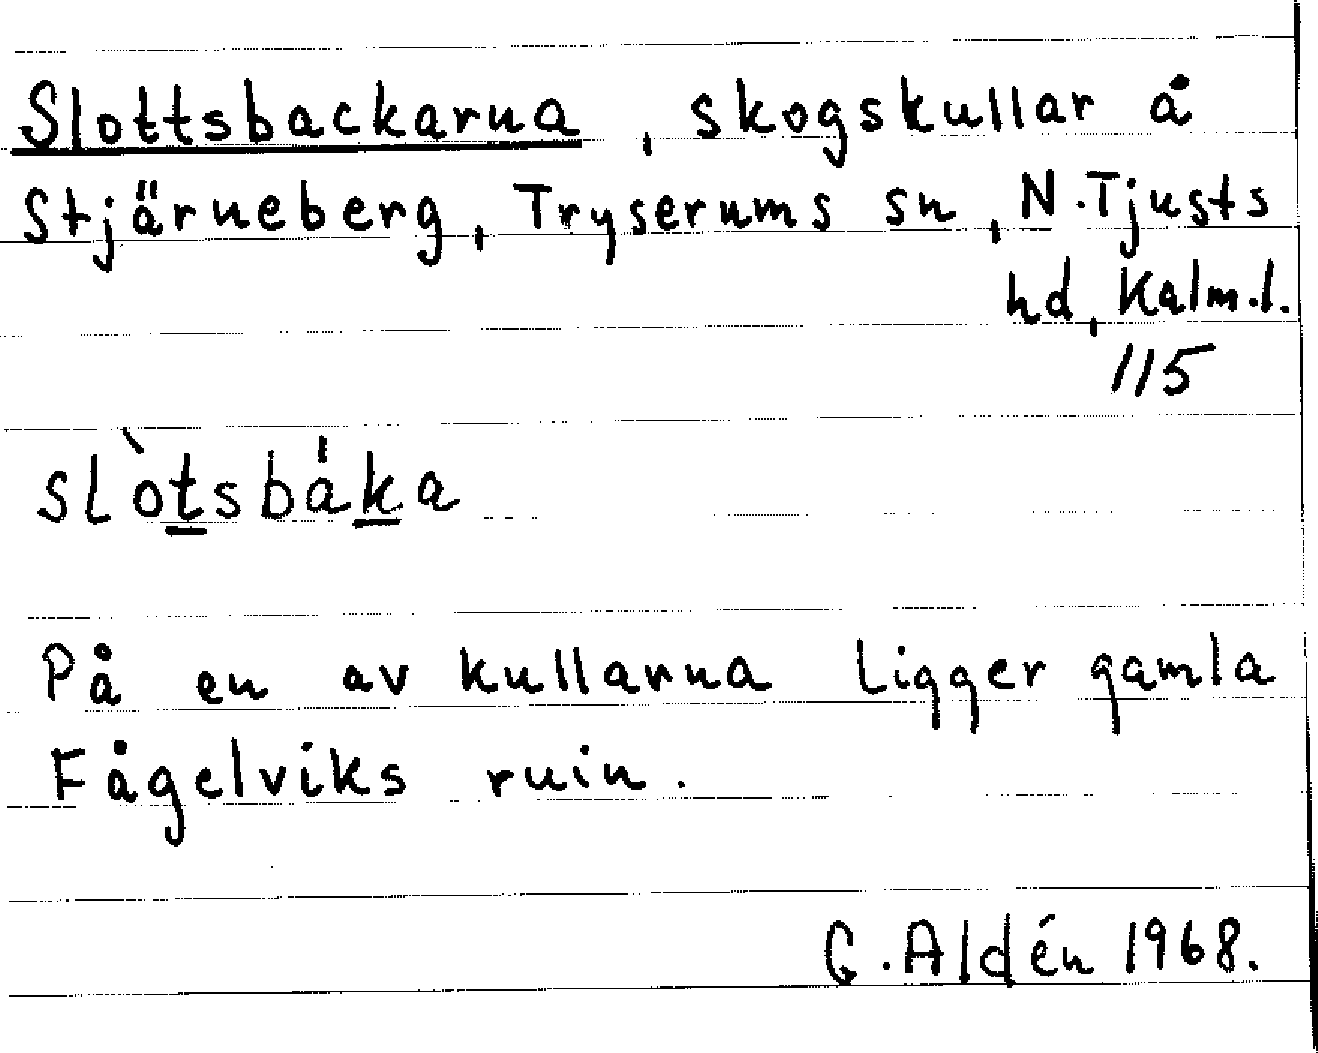 Slottsbackarna, skogskullar å
Stjärneberg, Tryserums sn, N. Tjusts
hd, Kalm.l.
115
slòtsbáka
På en av kullarna ligger gamla
Fågelviks ruin.
G. Aldén 1968.